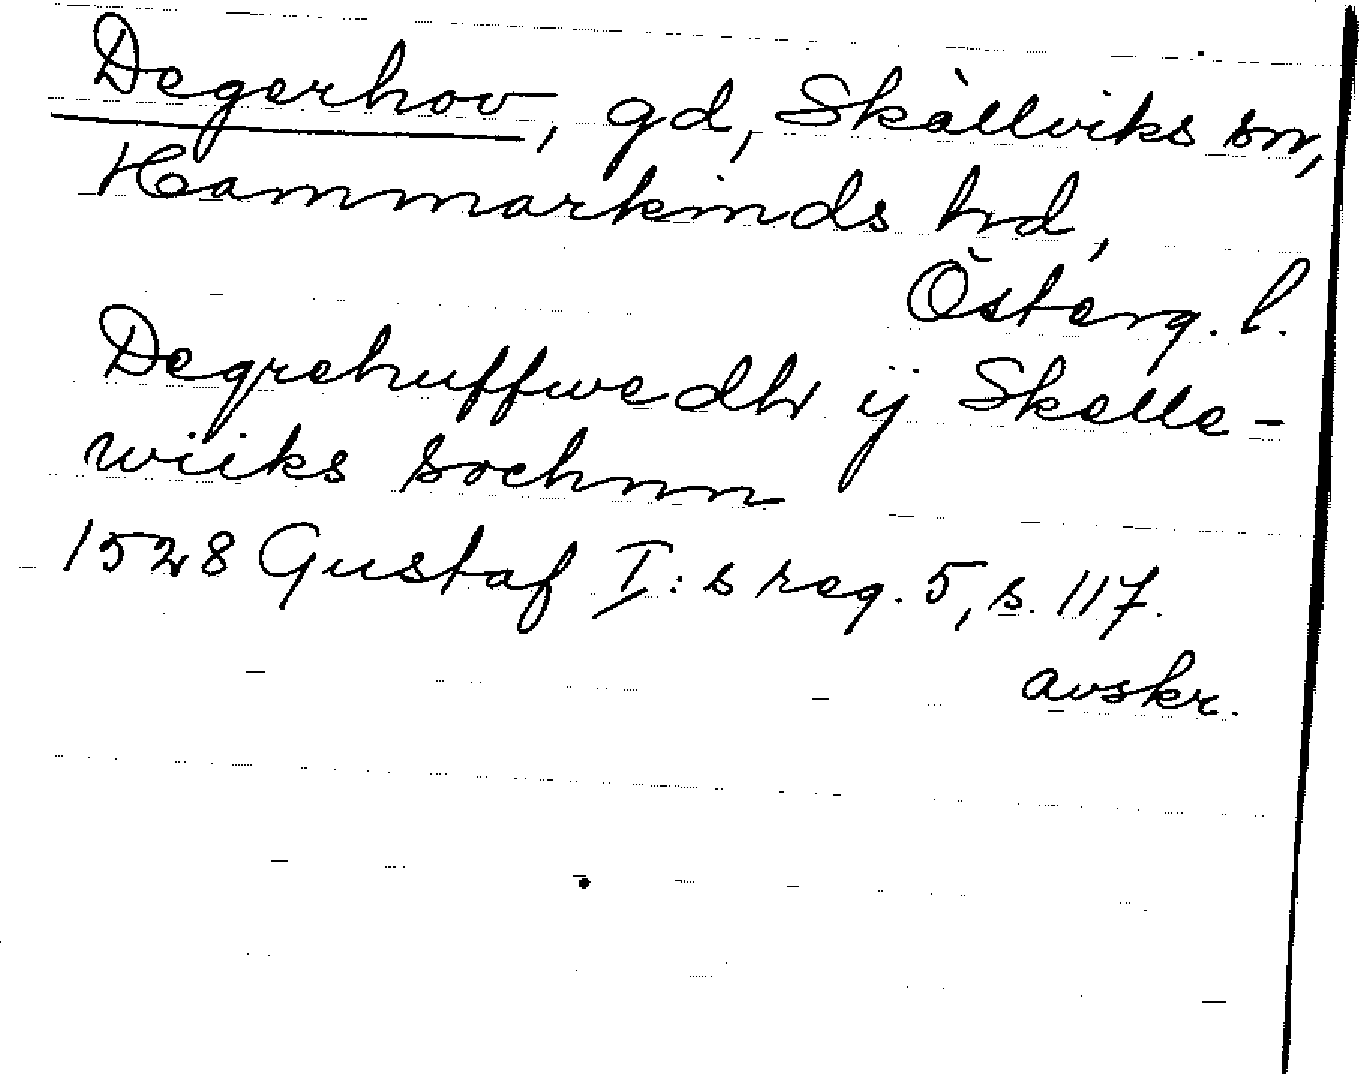 Degerhov, gd, Skällviks sn,
Hammarkinds hd,
Österg. l.
Degrehuffwedhr ij Skelle-
wiiks sochnn
1528 Gustaf I:s reg. 5, s. 117.
avskr.